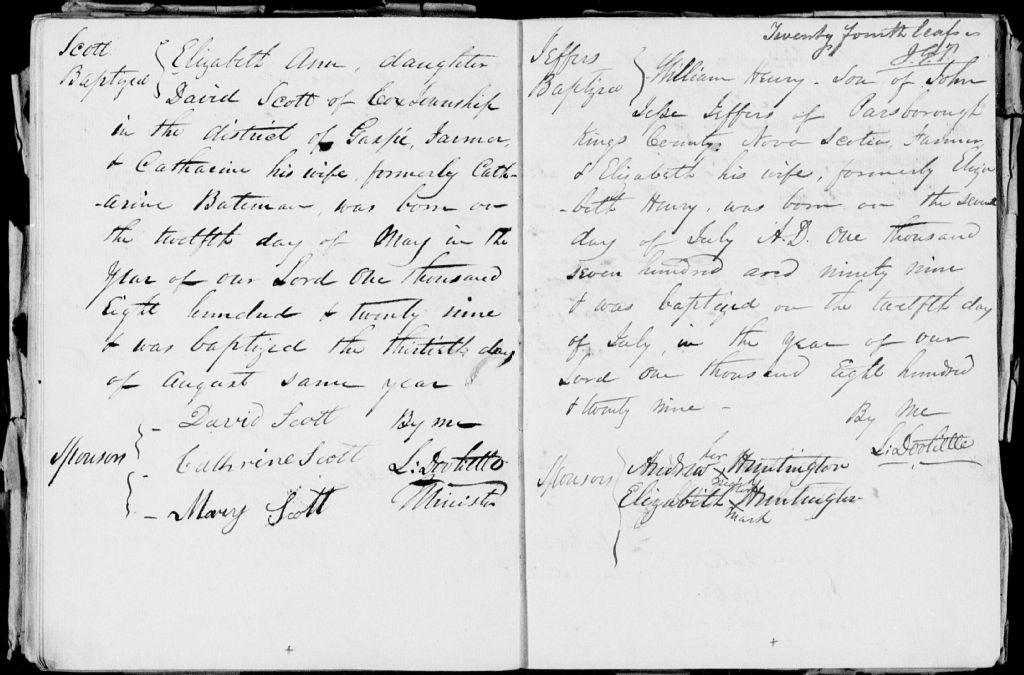 Scott
Baptized
Elizabeth Ann, daughter
David Scott of Cox Township
in the district of Gaspé, Farmer,
& Catharine his wife, formerly Cath-
-arine Bateman, was born on
the twelfth day of May in the
Year of our Lord One thousand
Eight hundred & twenty nine
& was baptized the thirtieth day
of August same year
- David Scott By me
Sponsors
- Cathrine Scott L: Doolittle
- Mary Scott Minister
Twenty fourth leaf
Jeffers
Baptized
William Henry - Son of John
Jeffers of Parsborough
Kings County Nova Scotia, Farmer,
& Elizabeth his wife, formerly Eliza
-beth Henry, was born on the seventh
day of July A.D. One thousand
seven hundred and ninety nine
& was baptized on the twelfth day
of July, in the year of our
Lord One thousand Eight hundred
& twenty nine -
By Me
L: Doolittle
Sponsors
Andrew Huntington
her
Elizabeth Huntington
mark